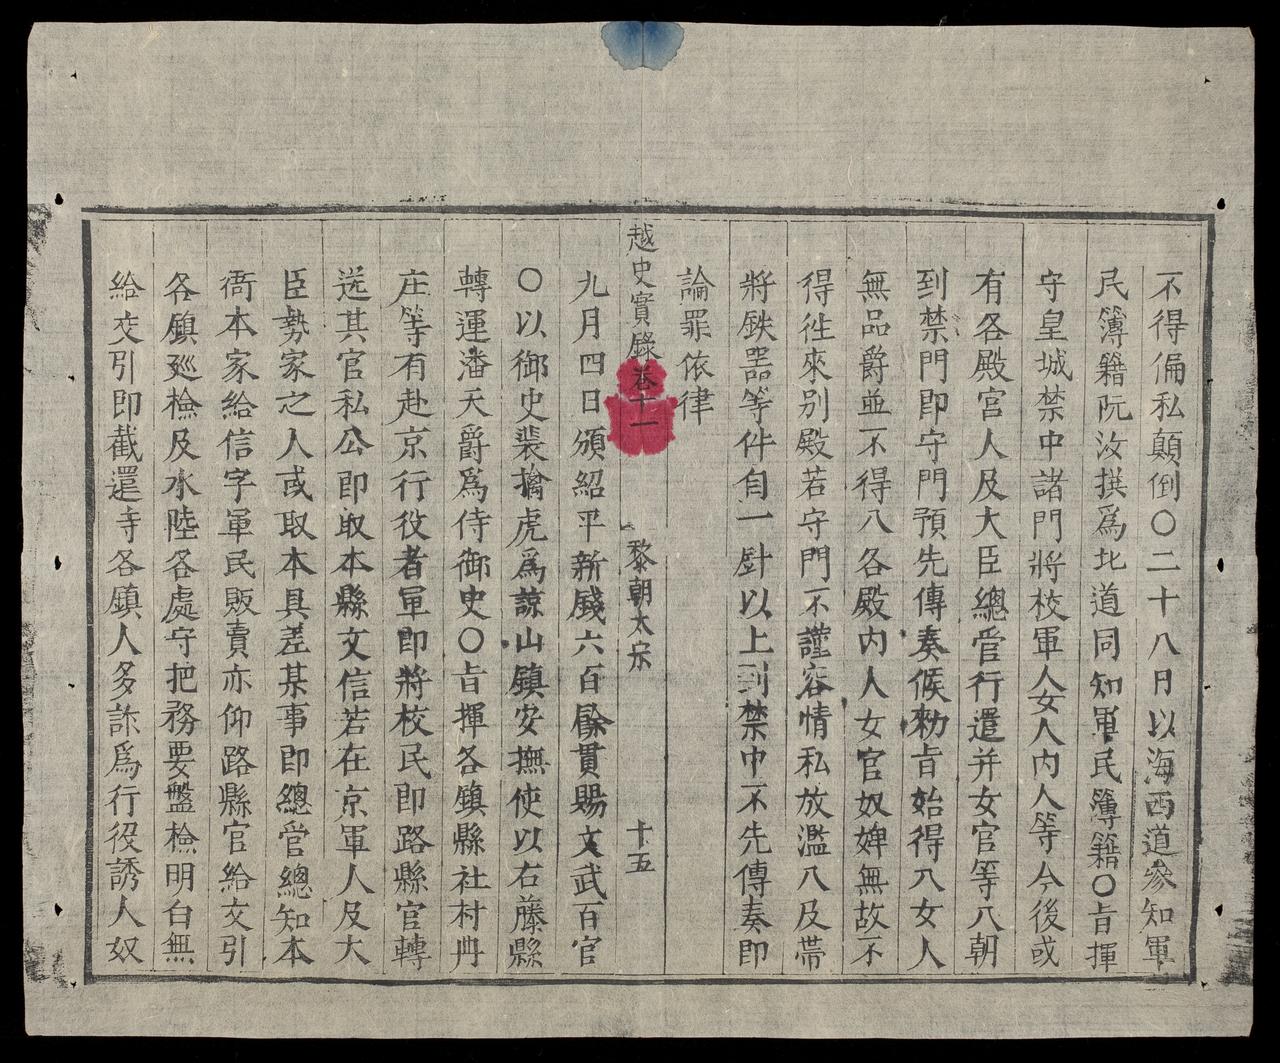 不得偏私顛倒〇二十八月以海西道參知軍
民簿籍阮汝撰爲北道同知軍民簿籍〇旨揮
守皇城禁中諸門將校軍人女人内人等今後或
有各殿宮人及大臣總官行遣并女官等入朝
到禁門即守門預先傳奏候勑旨始得入女人
無品爵並不得入各殿内人女官奴婢無故不
得徃來別殿若守門不謹容情私放濫入及帶
將鉄器等件自一針以上到禁中不先傳奏即
論罪依律
越史實錄卷十一 黎朝太宗 十五
九月四日頒紹平新錢六百餘貫賜文武百官
〇以御史裴擒虎爲諒山鎮安撫使以右藤縣
轉運潘天爵爲侍御史〇旨揮各鎮縣社村冊
庄等有赴京行役者軍即將校民即路縣官轉
送其官私公即取本縣文信若在京軍人及大
臣勢家之人或取本具差某事即總官總知本
衙本家給信字軍民販賣亦仰路縣官給交引
各鎮廵檢及水陸各處守把務要盤檢明白無
給交引即截還寺各鎮人多詐爲行役誘人奴